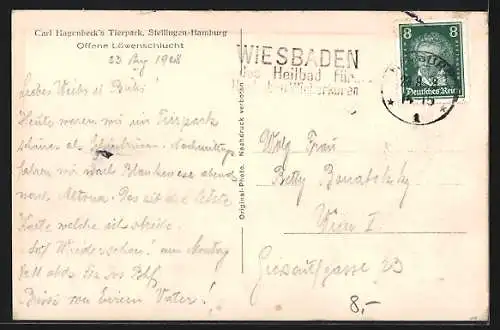 Carl Hagenbeck's Tierpark, Stellingen-Hamburg
Offene Löwenschlucht
23 Aug 1928
Liebes Weibs u. Bubi!
Heute waren wir im Tierpark
schöner als Schönbrunn. Nachmittags
fahren wir nach Blankenese abends
nach Altona. Das ist die letzte
Karte welche ich schreibe.
"Auf Wiedersehen" am Montag
Bussi von Eurem Vater!
Original-Photo. Nachdruck verboten
WIESBADEN
das Heilbad für
Winterkuren
8 8
Deutsches Reich
1
Frau
Betty
Wien I.
33
8,-